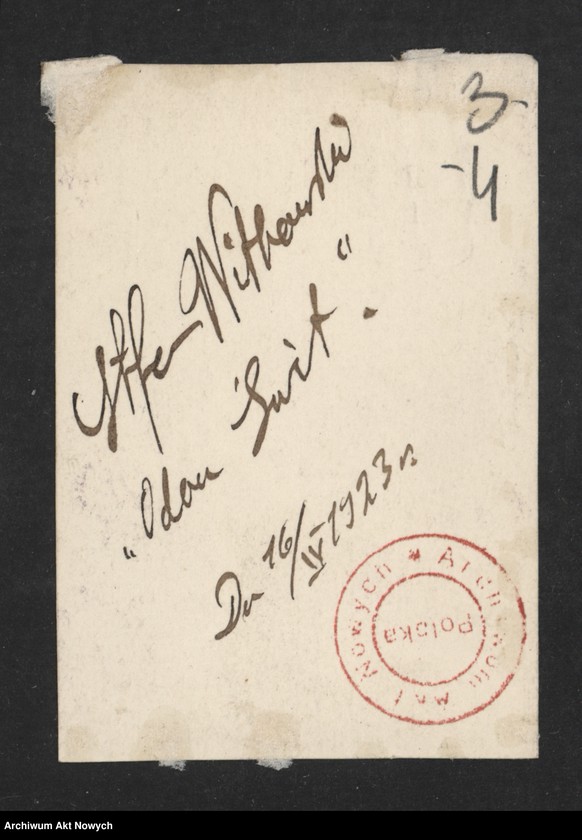 3-
-4
Witkowski
"Odon Świt".
Dn 16/IV 1923 r.
Archiwum Akt Nowych * Polska
Archiwum Akt Nowych